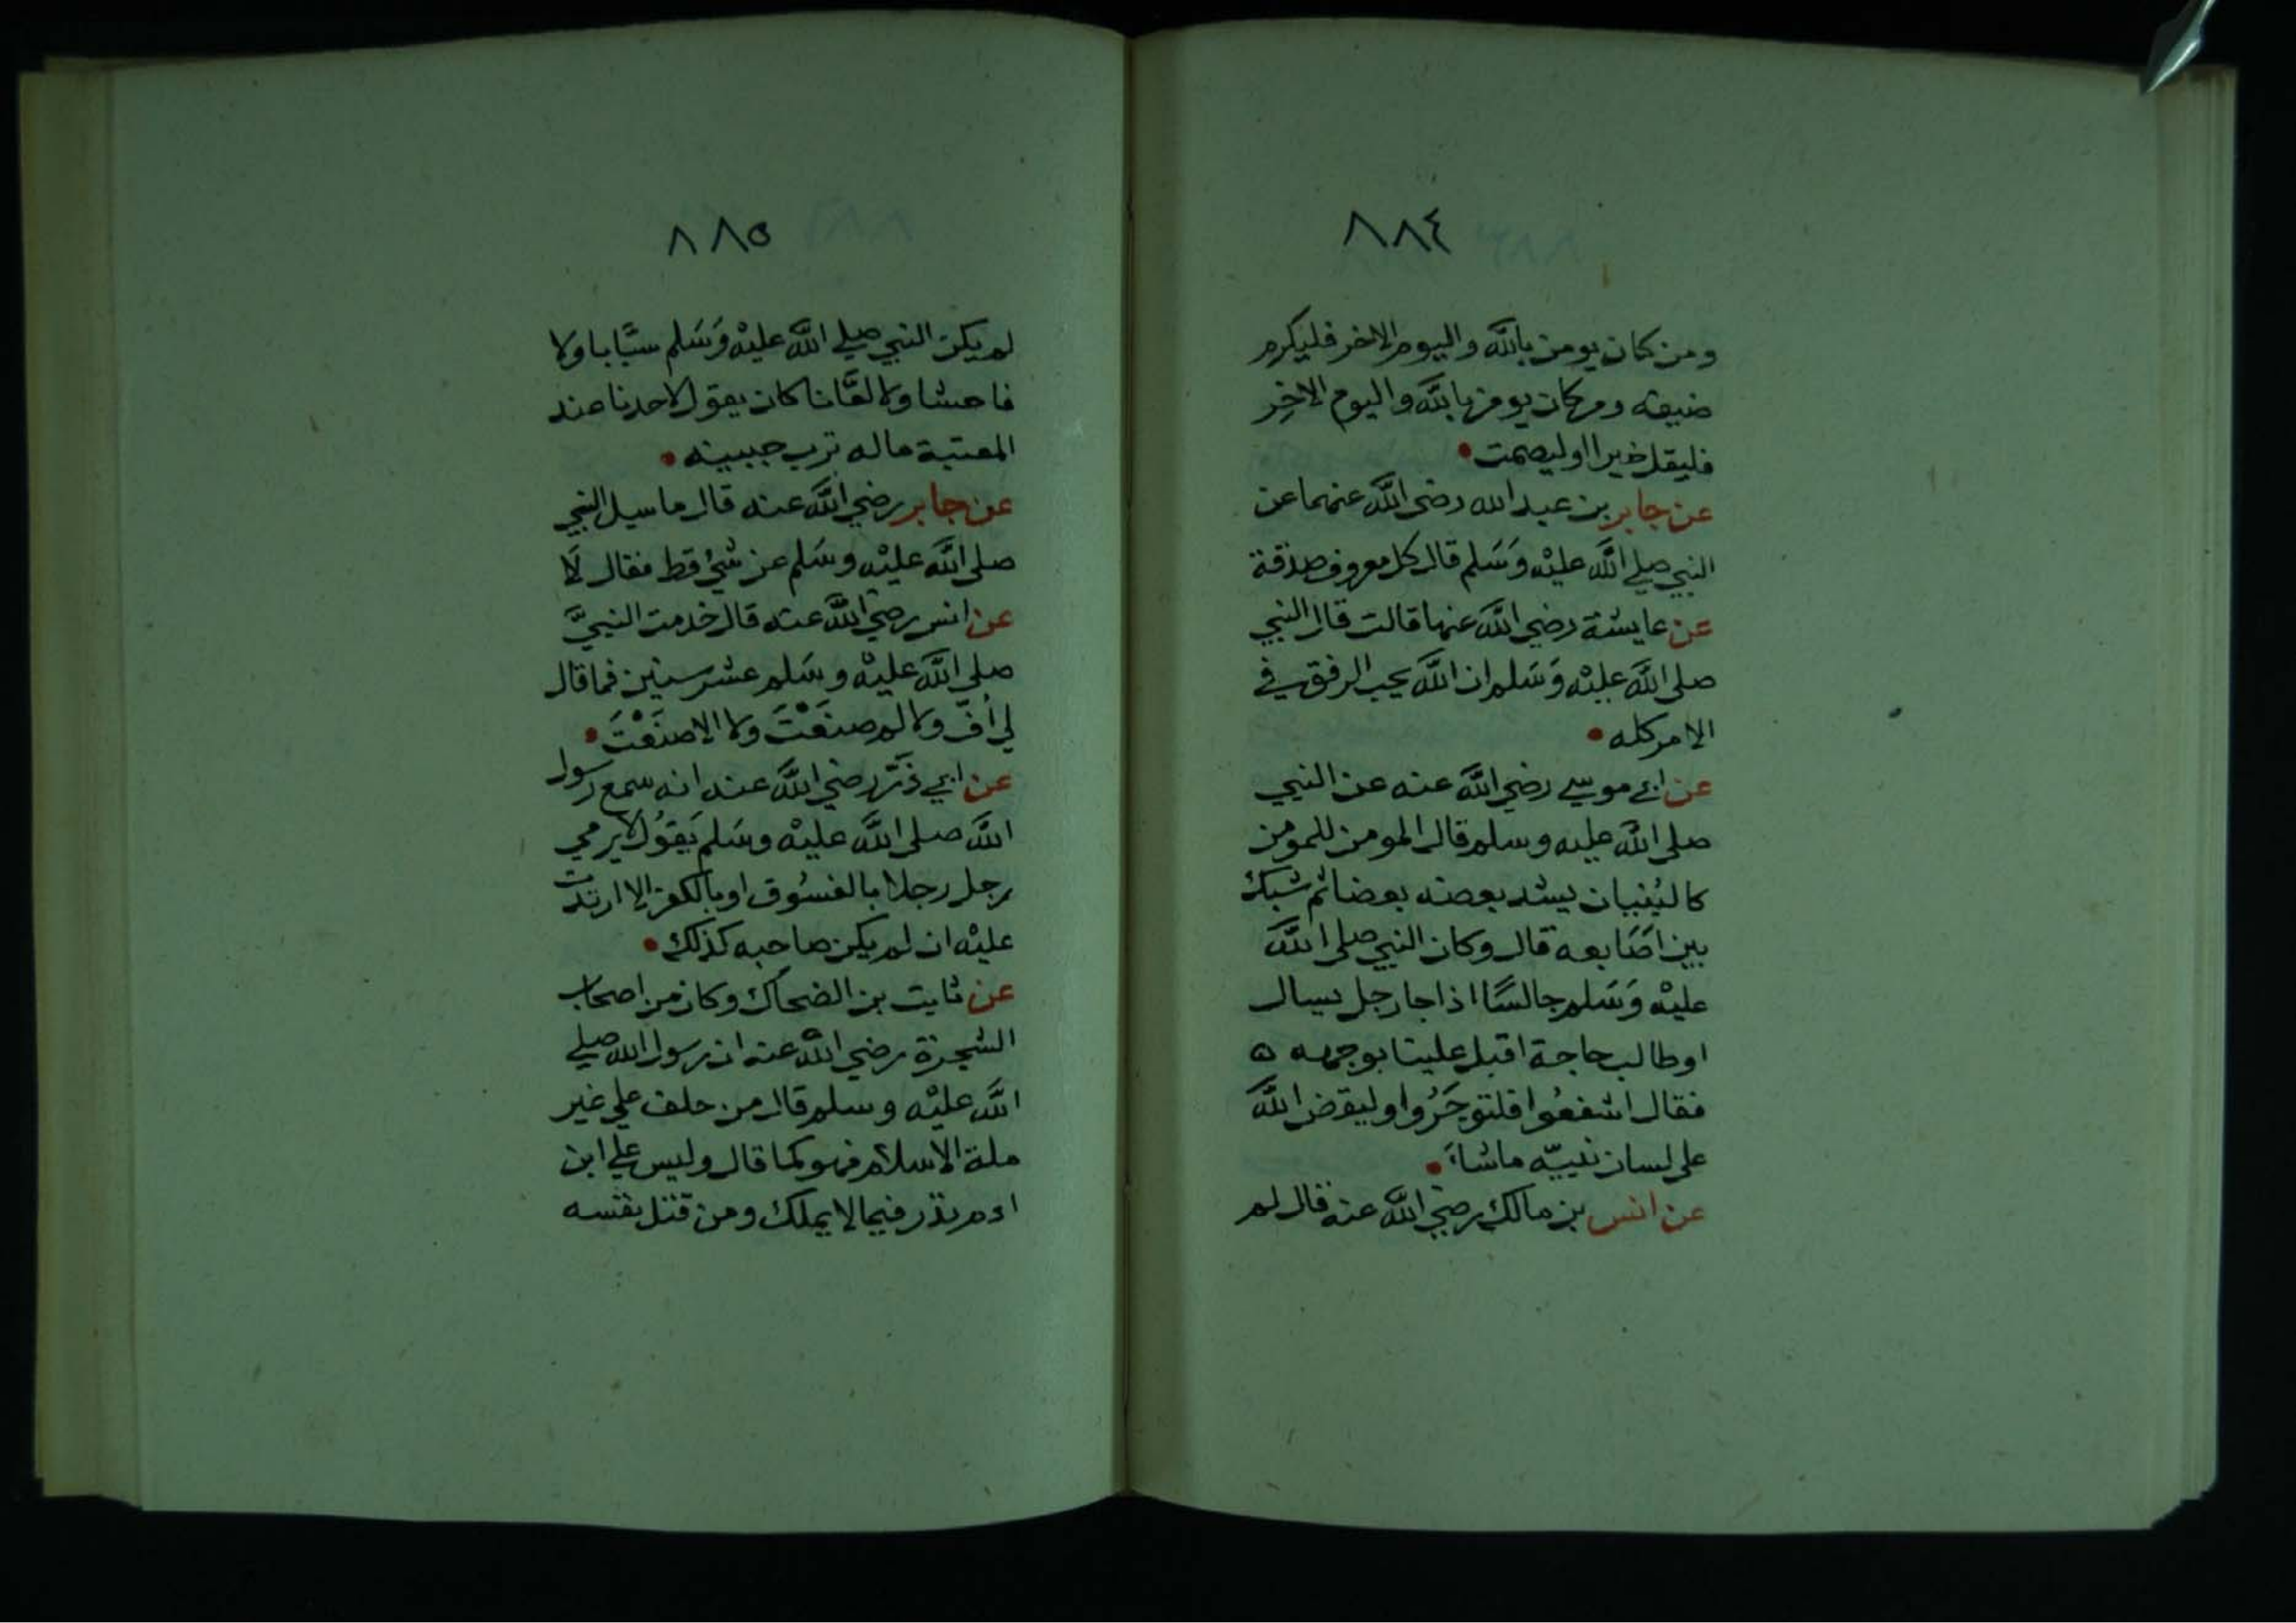 ٨٨٤
ومن كان يومن بالله واليوم الاخر فليكرم
ضيفه ومن كان يومن بالله واليوم الاخِر
فليقل خيرا او ليصمت
عن جابر بن عبد الله رضي الله عنهما عن
النبي صلي الله عليْه وَسَلم قال كل معروف صدقة
عن عايشة رضي الله عنها قالت قال النبي
صلي الله عليْه وَسَلم ان الله يحب الرفق في
الامر كله
عن ابي موسي رضي الله عنه عن النبي
صلي الله عليه وسلم قال المومن للمومن
كالبُنيان يشد بعضه بعضا ثم شبك
بين اصَابعه قال وكان النبي صلي الله
عليْه وَسَلم جالسًا اذا جا رجل يسال
او طالب حاجة اقبل علينا بوجهه ه
فقال اشفعُوا فلتوجَرُوا وليقض الله
علي لسان نبيّه ما شاءَ
عن انس بن مالك رضي الله عنه قال لم
٨٨٥
لم يكن النبي صلي الله عليْه وَسَلم سبَّابا ولا
فاحشا ولا لعَّانا كان يقول لاحدنا عند
المعتبة ماله ترب جبينه
عن جابر رضي الله عنه قال ما سيل النبي
صلي الله عليْه وسَلم عن شيء قط فقال لَا
عن انس رضي الله عنه قال خدمت النبيَّ
صلي الله عليْه وسَلم عشر سنين فما قال
لي أفّ ولا لم صنَعْتَ ولا الا صنَعْتَ
عن ابي ذَرّ رضي الله عنه انه سمع رسول
الله صلي الله عليْه وسَلم يَقوُل لا يرمي
رجل رجلا بالفسُوق او بالكفر الا ارتدت
عليْه ان لم يكن صاحبه كذلك
عن ثابت بن الضحاك وكان من اصحاب
الشجرة رضي الله عنه ان رسول الله صلي
الله عليْه وسلم قال من حلف علي غير
ملة الاسلام فهو كما قال وليس علي ابن
ادم نذر فيما لا يملك ومن قتل نفسه